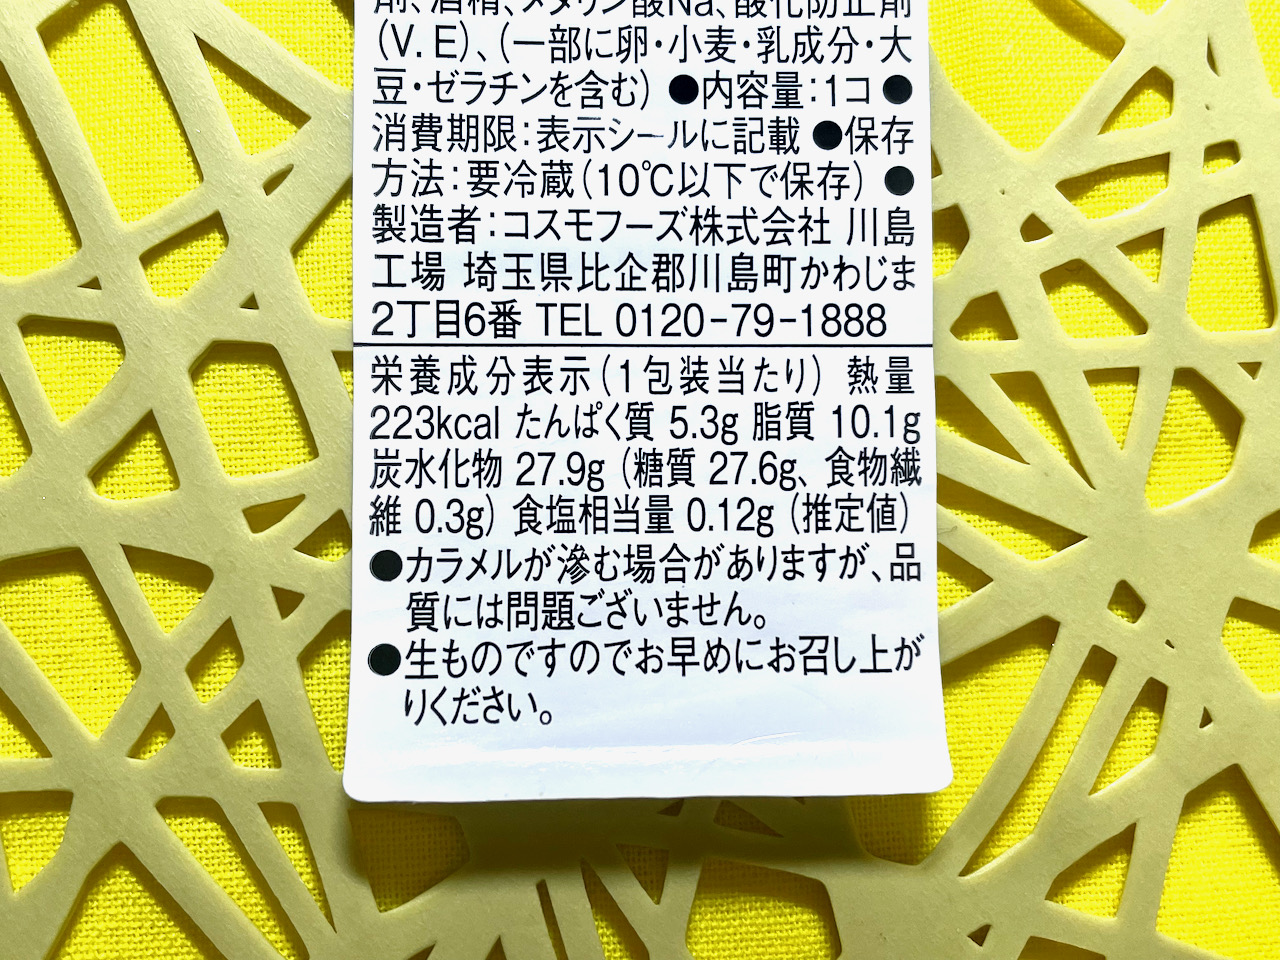 剤、酒精、メタリン酸Na、酸化防止剤
(V.E)、(一部に卵・小麦・乳成分・大
豆・ゼラチンを含む) ●内容量:1コ ●
消費期限:表示シールに記載 ●保存
方法:要冷蔵(10℃以下で保存) ●
製造者:コスモフーズ株式会社 川島
工場 埼玉県比企郡川島町かわじま
2丁目6番 TEL 0120-79-1888
栄養成分表示(1包装当たり) 熱量
223kcal たんぱく質 5.3g 脂質 10.1g
炭水化物 27.9g (糖質 27.6g、食物繊
維 0.3g) 食塩相当量 0.12g (推定値)
●カラメルが滲む場合がありますが、品
質には問題ございません。
●生ものですのでお早めにお召し上が
りください。